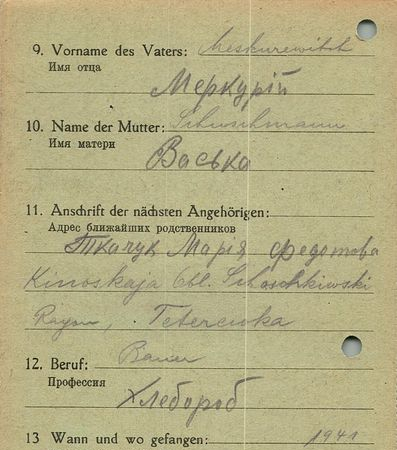 9. Vorname des Vaters:
Имя отца
Меркурій
10. Name der Mutter:
Имя матери
Васька
11. Anschrift der nächsten Angehörigen:
Адрес ближайших родственников
Ткачук Марія Федотова
Kinoskaja Obl. Schaschkiwski
Rayon,
12. Beruf: Bauer
Профессия
Хлебороб
13 Wann und wo gefangen: 1941